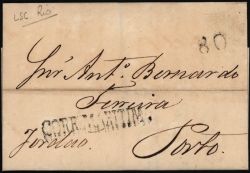 LSC. Rio
80
Snr. Anto. Bernardo
Ferreira
CORRO MARITIMO.
Porto.